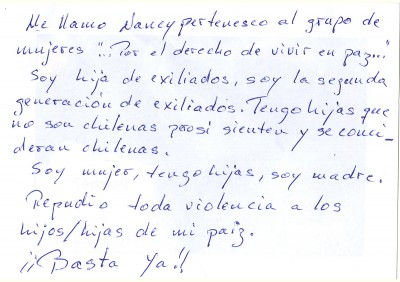 Me llamo Nancy pertenesco al grupo de
mujeres "... Por el derecho de vivir en paz..."
Soy hija de exiliados, soy la segunda
generación de exiliados. Tengo hijas que
no son chilenas perosi sienten y se conci-
deran chilenas.
Soy mujer, tengo hijas, soy madre.
Repudio toda violencia a los
hijos/hijas de mi paiz.
¡¡Basta Ya!!